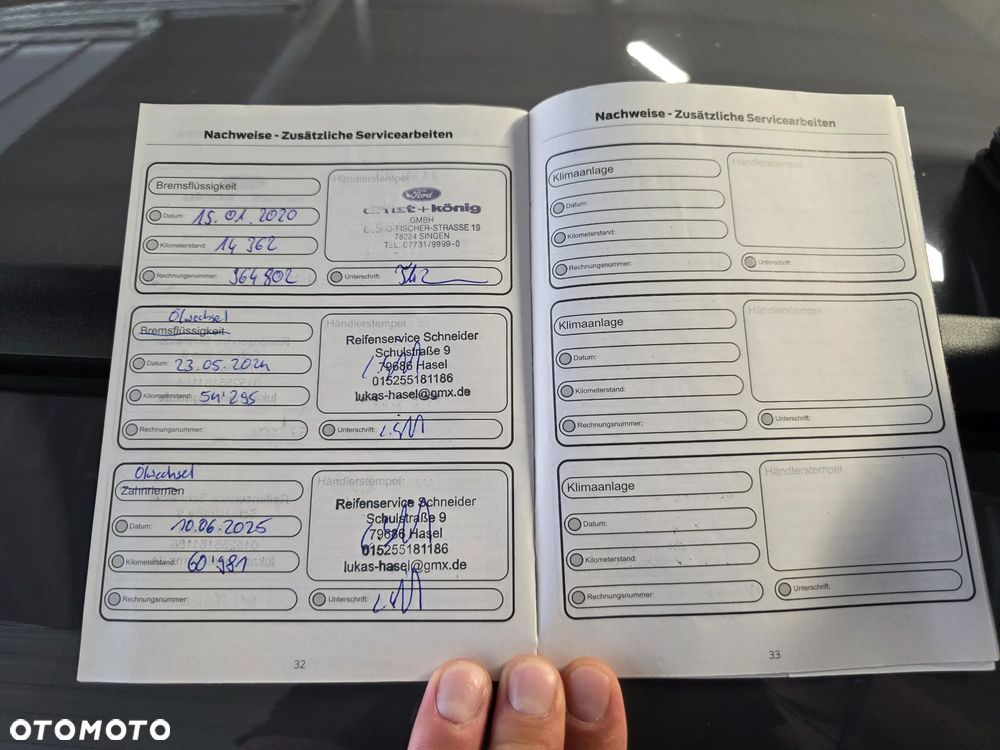 Nachweise - Zusätzliche Servicearbeiten
Bremsflüssigkeit
Datum: 15.01.2020
Kilometerstand: 14 362
Rechnungsnummer: 964802
Händlerstempel
Ford
+könig
GMBH
-FISCHER-STRASSE 19
78224 SINGEN
TEL. 07731/9999-0
Unterschrift:
Ölwechsel
Bremsflüssigkeit
Datum: 23.05.2024
Kilometerstand: 54'295
Rechnungsnummer:
Händlerstempel
Reifenservice Schneider
Schulstraße 9
79686 Hasel
015255181186
lukas-hasel@gmx.de
Unterschrift:
Ölwechsel
Zahnriemen
Datum: 10.06.2025
Kilometerstand: 60'981
Rechnungsnummer:
Händlerstempel
Reifenservice Schneider
Schulstraße 9
79686 Hasel
015255181186
lukas-hasel@gmx.de
Unterschrift:
32
Nachweise - Zusätzliche Servicearbeiten
Klimaanlage
Datum:
Kilometerstand:
Rechnungsnummer:
Händlerstempel
Unterschrift:
Klimaanlage
Datum:
Kilometerstand:
Rechnungsnummer:
Händlerstempel
Unterschrift:
Klimaanlage
Datum:
Kilometerstand:
Rechnungsnummer:
Händlerstempel
Unterschrift:
33
OTOMOTO